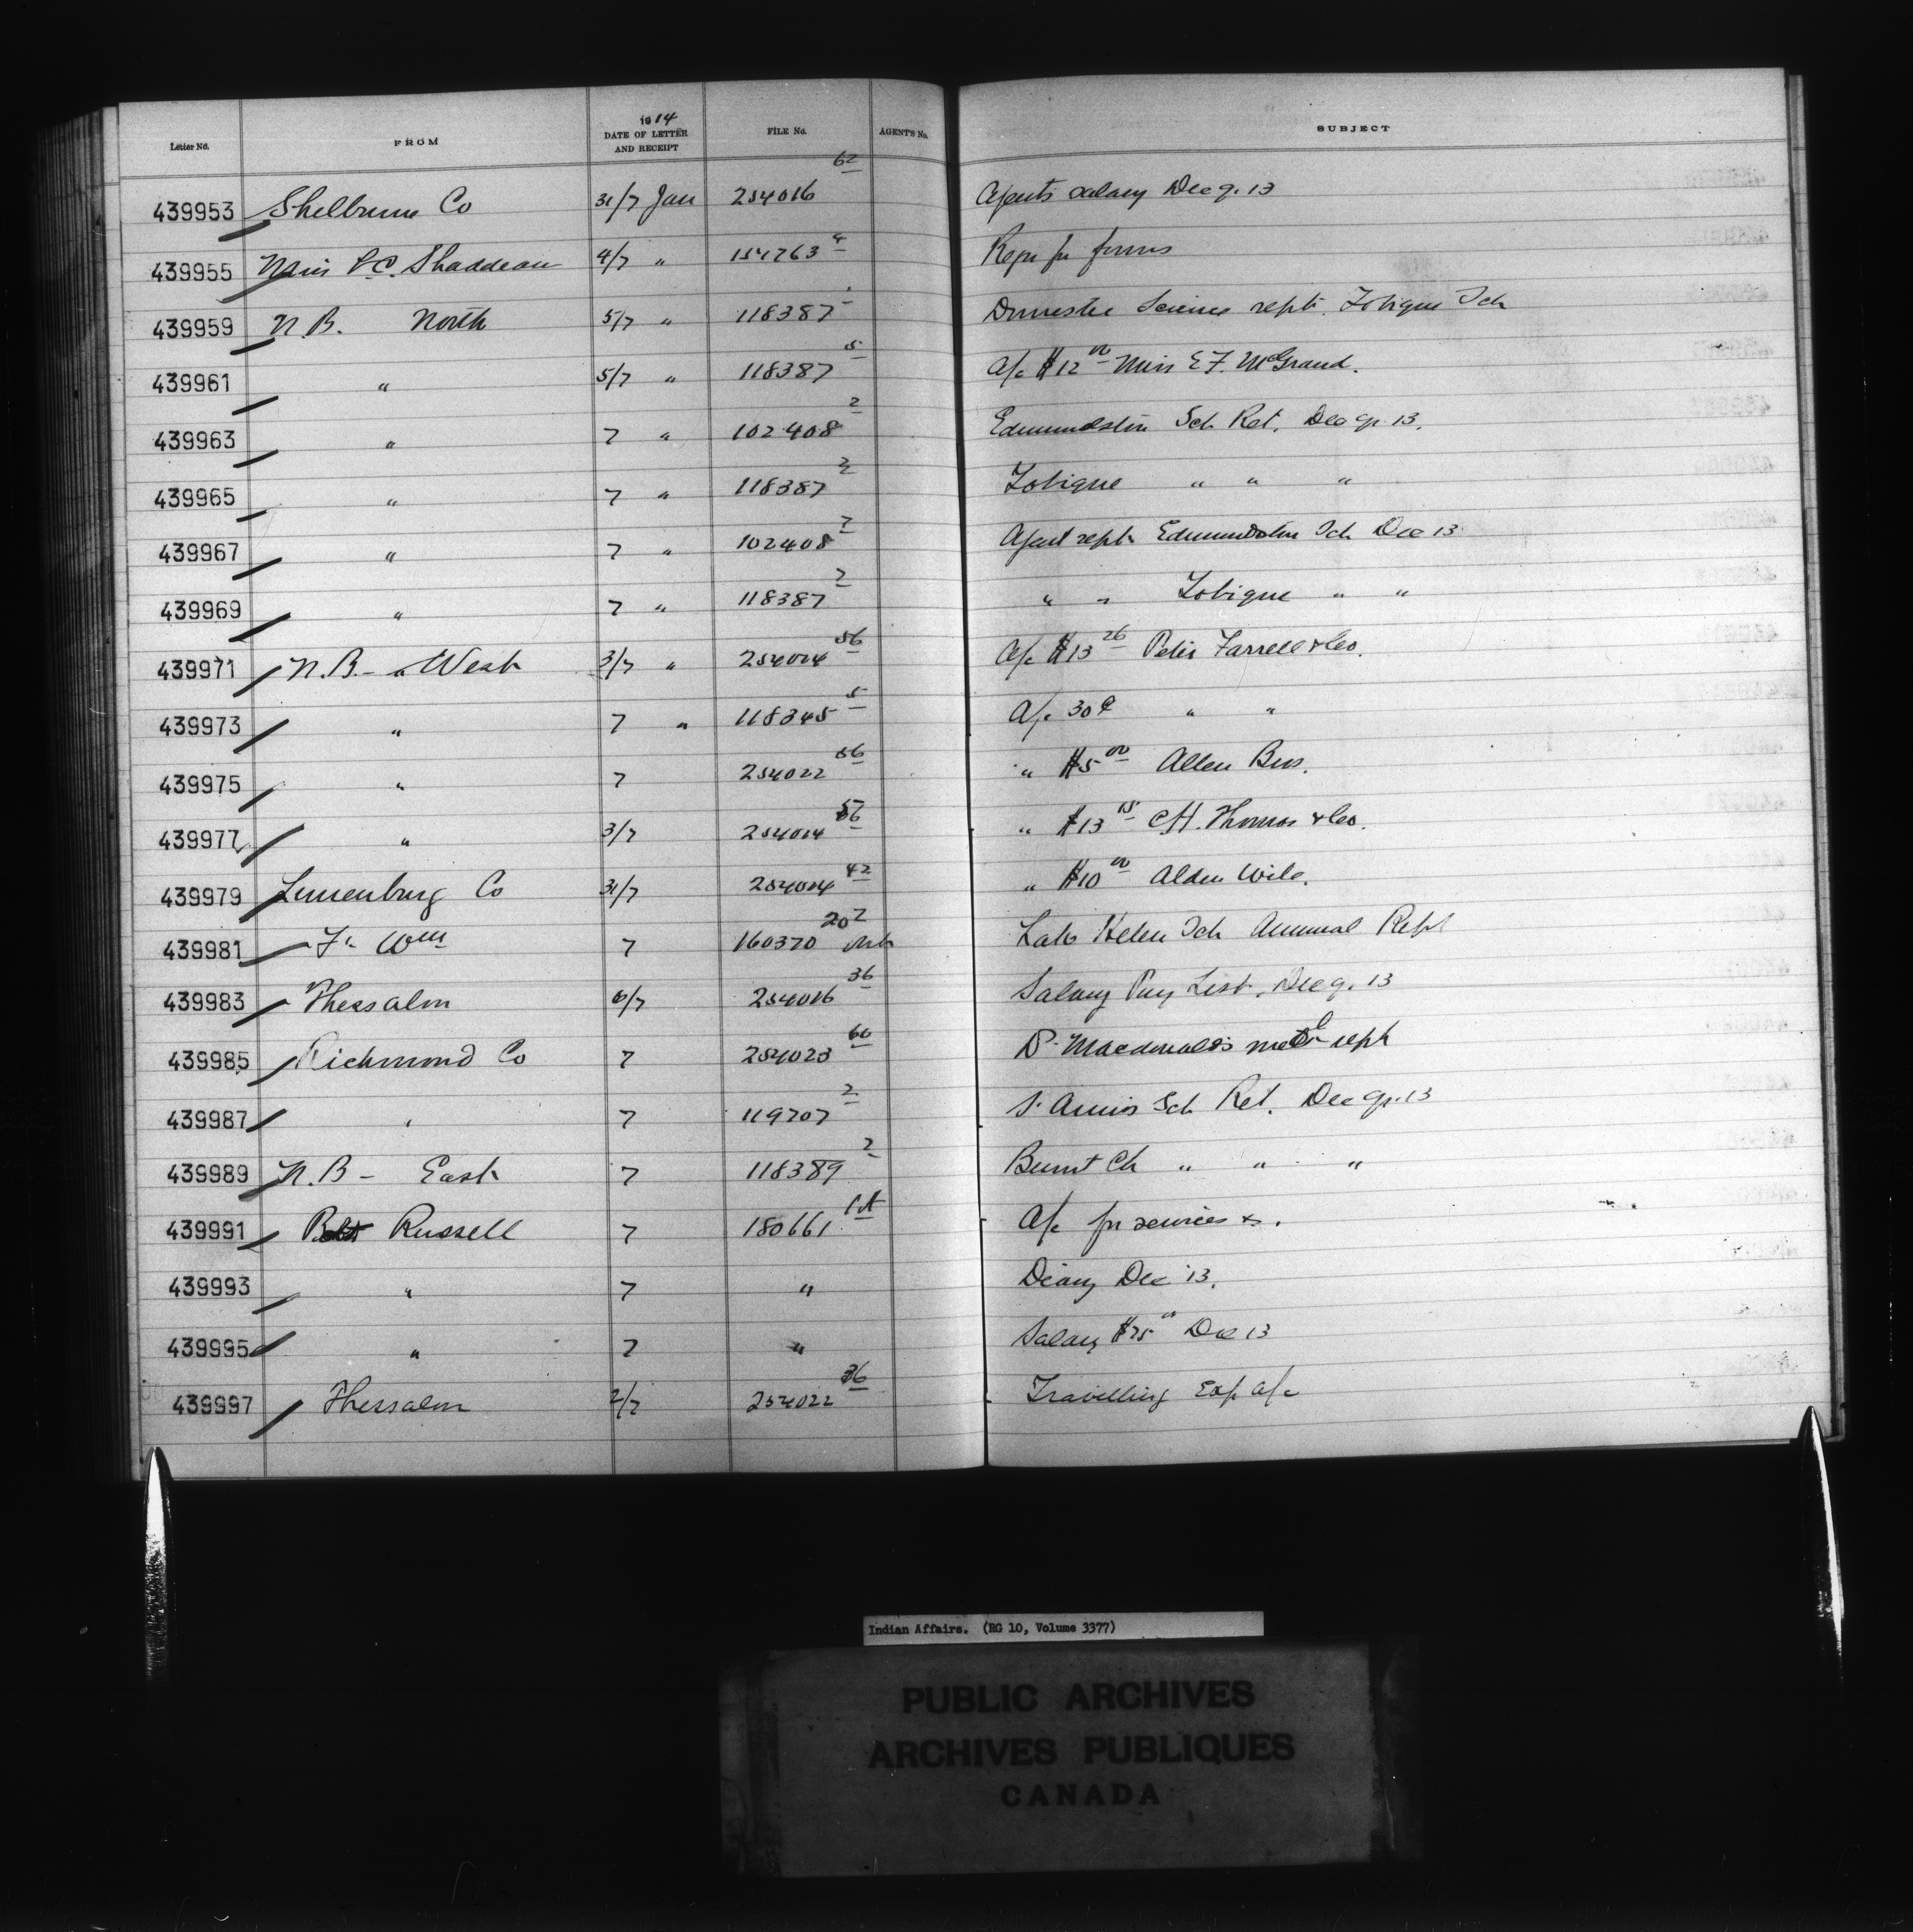 Letter No. FROM 1914 DATE OF LETTER AND RECEIPT FILE No. AGENT'S No. SUBJECT
439953 Shelburne Co 31/7 Jan 254016 62 Agents salary Dec q. 13
439955 Miss Shaddeau 4/7 " 4 Reqn for forms
439959 N.B. North 5/7 " 118387 Domestic Science rept. Tobique Sch
439961 " 5/7 " 118387 5 A/c $12 00 Miss E F. McGrand.
439963 " 7 " 102408 2 Edmundston Sch Ret. Dec qr. 13.
439965 " 7 " 118387 2 Tobique " " "
439967 " 7 " 102408 2 Agent rept. Edmundston Sch Dec 13
439969 " 7 " 118387 2 " " Tobique " "
439971 N.B. - West 3/7 " 56 A/c $13 26 Peter Farrell & Co.
439973 " 7 " 118345 5 A/c 30¢ " "
439975 " 7 254022 56 " $5 00 Allen Bros.
439977 " 3/7 " $13 15 C H. Thomas & Co.
439979 Lunenburg Co 31/7 42 " $10 00 Alden Wile.
439981 Ft. Wm 7 160370 20 2 Lake Helen Sch Annual Rept
439983 Thessalon 6/7 254016 36 Salary Pay List. Dec q. 13
439985 Richmond Co 7 254023 60 Dr. Macdonald's med rept
439987 " 7 119707 2 St. Annes Sch Ret. Dec qr. 13
439989 N.B - East 7 118389 2 Burnt Ch " " "
439991 Russell 7 180661 1A A/c for services &.
439993 " 7 " Diary Dec '13.
439995 " 7 " Salary $75 00 Dec 13
439997 Thessalon 2/7 254022 36 Travelling Exp a/c
Indian Affairs. (RG 10, Volume 3377)
PUBLIC ARCHIVES
ARCHIVES PUBLIQUES
CANADA